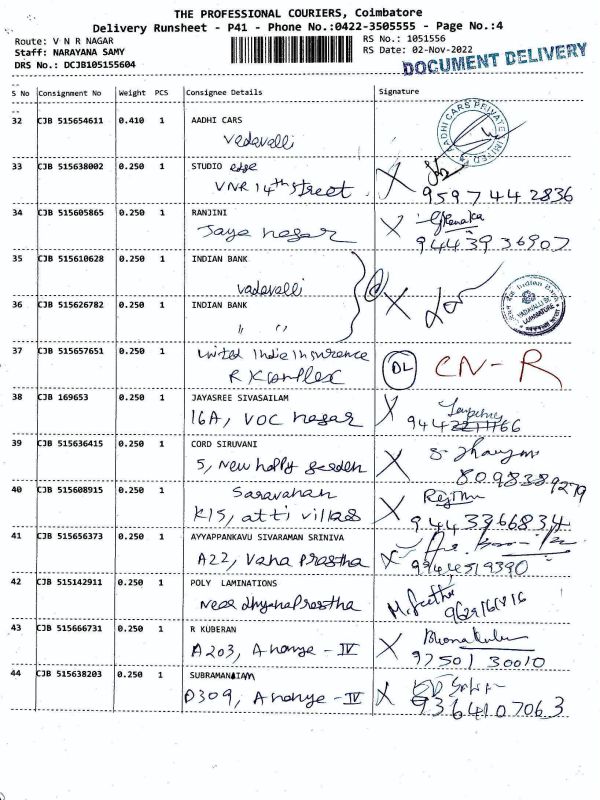 THE PROFESSIONAL COURIERS, Coimbatore
Delivery Runsheet - P41 - Phone No.:0422-3505555 - Page No.:4
Route: V N R NAGAR
RS No.: 1051556
Staff: NARAYANA SAMY
RS Date: 02-Nov-2022
DRS No.: DCJB105155604
DOCUMENT DELIVERY
S No Consignment No Weight PCS Consignee Details Signature
32 CJB 515654611 0.410 1 AADHI CARS
Vadavalli
AADHI CARS PRIVATE LIMITED
33 CJB 515638002 0.250 1 STUDIO edge
VNR 14th street X 9597442836
34 CJB 515605865 0.250 1 RANJINI
Jaya nagar X 9443936907
35 CJB 515610628 0.250 1 INDIAN BANK
Vadavalli
Indian Bank
VADAVALLI
COIMBATORE
36 CJB 515626782 0.250 1 INDIAN BANK X
" "
37 CJB 515657651 0.250 1 United India Insurance DL CN-R
R K Complex
38 CJB 169653 0.250 1 JAYASREE SIVASAILAM
16A, VOC nagar X
39 CJB 515636415 0.250 1 CORD SIRUVANI
5, New holly garden X 8098389279
40 CJB 515608915 0.250 1 Saravanan
K15, atti villas X 9443366834
41 CJB 515656373 0.250 1 AYYAPPANKAVU SIVARAMAN SRINIVA
A22, Vana Prastha X 9944519390
42 CJB 515142911 0.250 1 POLY LAMINATIONS
Near dhyanaprastha
43 CJB 515666731 0.250 1 R KUBERAN
A203, Ananya - IV X 97501 30010
44 CJB 515638203 0.250 1 SUBRAMANIAM
D309, Ananya - IV X 9364107063